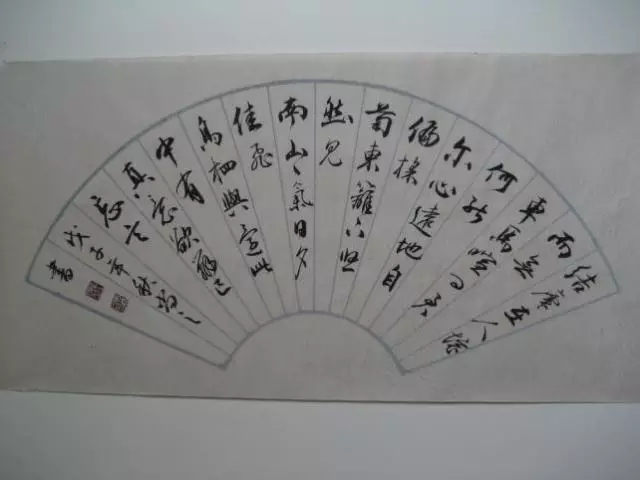 结廬在人境
而無
車馬喧问君
何能
尔心遠地自
偏採
菊東籬下悠
然见
南山々氣日夕
佳飛
鳥相與還此
中有
真意欲辨已
忘言
戊子年秋
書